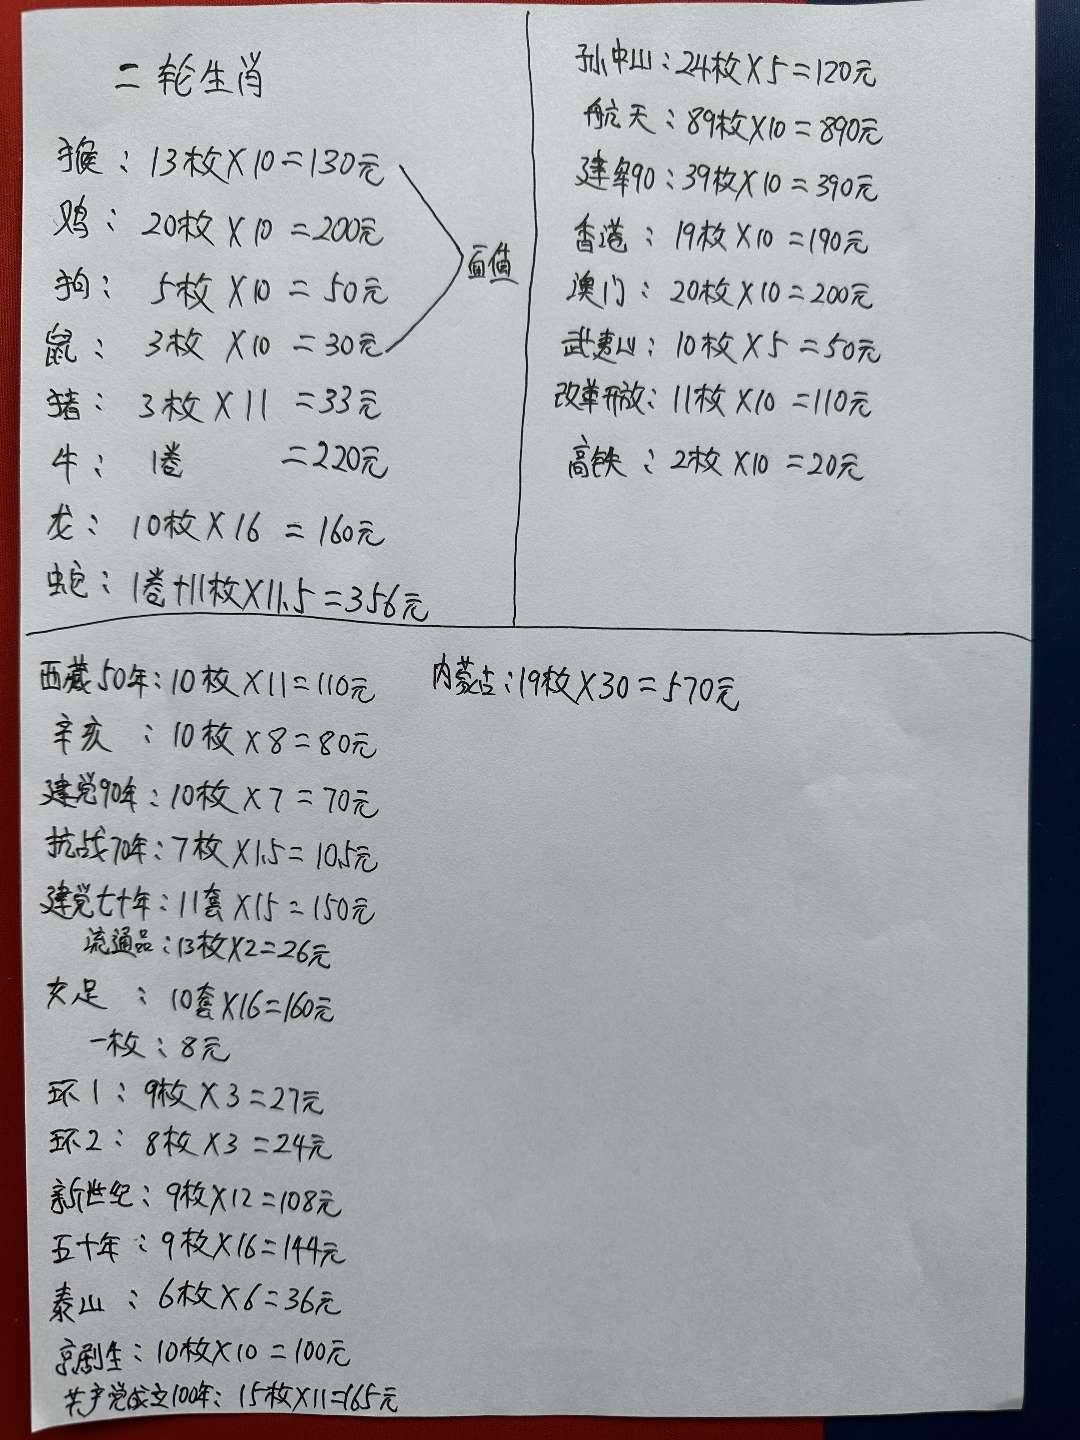 二轮生肖
猴：13枚×10=130元
鸡：20枚×10=200元
狗：5枚×10=50元
鼠：3枚×10=30元
面值
猪：3枚×11=33元
牛：1卷=220元
龙：10枚×16=160元
蛇：1卷+11枚×11.5=356元
孙中山：24枚×5=120元
航天：89枚×10=890元
建军90：39枚×10=390元
香港：19枚×10=190元
澳门：20枚×10=200元
武夷山：10枚×5=50元
改革开放：11枚×10=110元
高铁：2枚×10=20元
西藏50年：10枚×11=110元
辛亥：10枚×8=80元
建党90年：10枚×7=70元
抗战70年：7枚×1.5=10.5元
建党七十年：11套×15=150元
流通品：13枚×2=26元
女足：10套×16=160元
一枚：8元
环1：9枚×3=27元
环2：8枚×3=24元
新世纪：9枚×12=108元
五十年：9枚×16=144元
泰山：6枚×6=36元
京剧生：10枚×10=100元
共产党成立100年：15枚×11=165元
内蒙古：19枚×30=570元